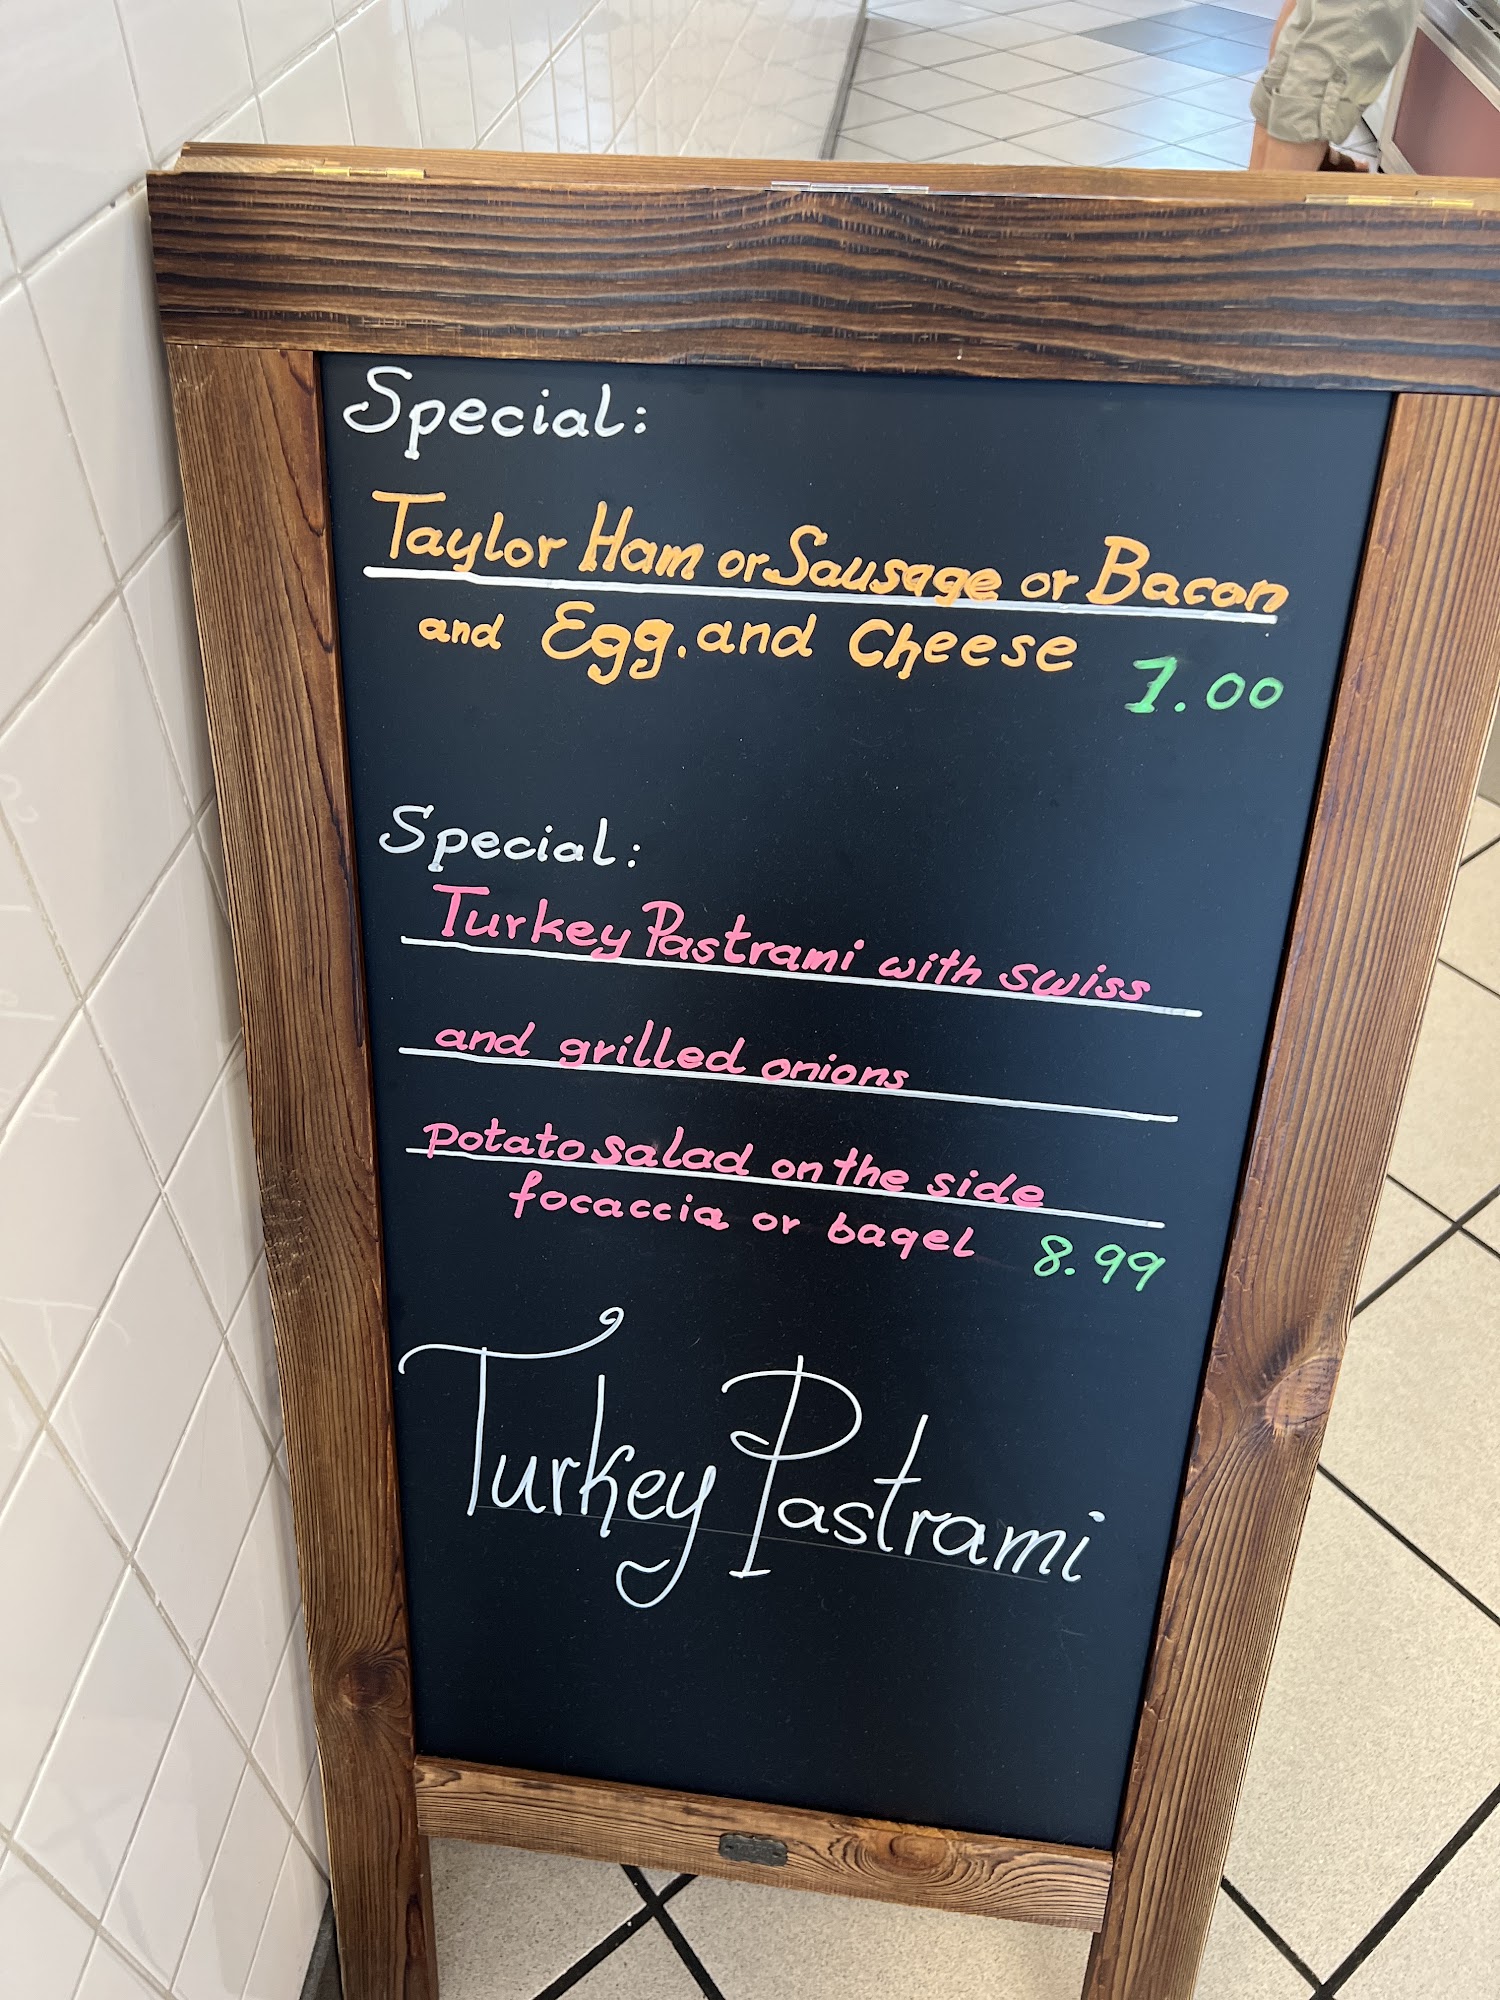 Special:
Taylor Ham or Sausage or Bacon
and Egg. and Cheese
7.00
Special:
Turkey Pastrami with swiss
and grilled onions
potato salad on the side
focaccia or bagel 8.99
Turkey Pastrami